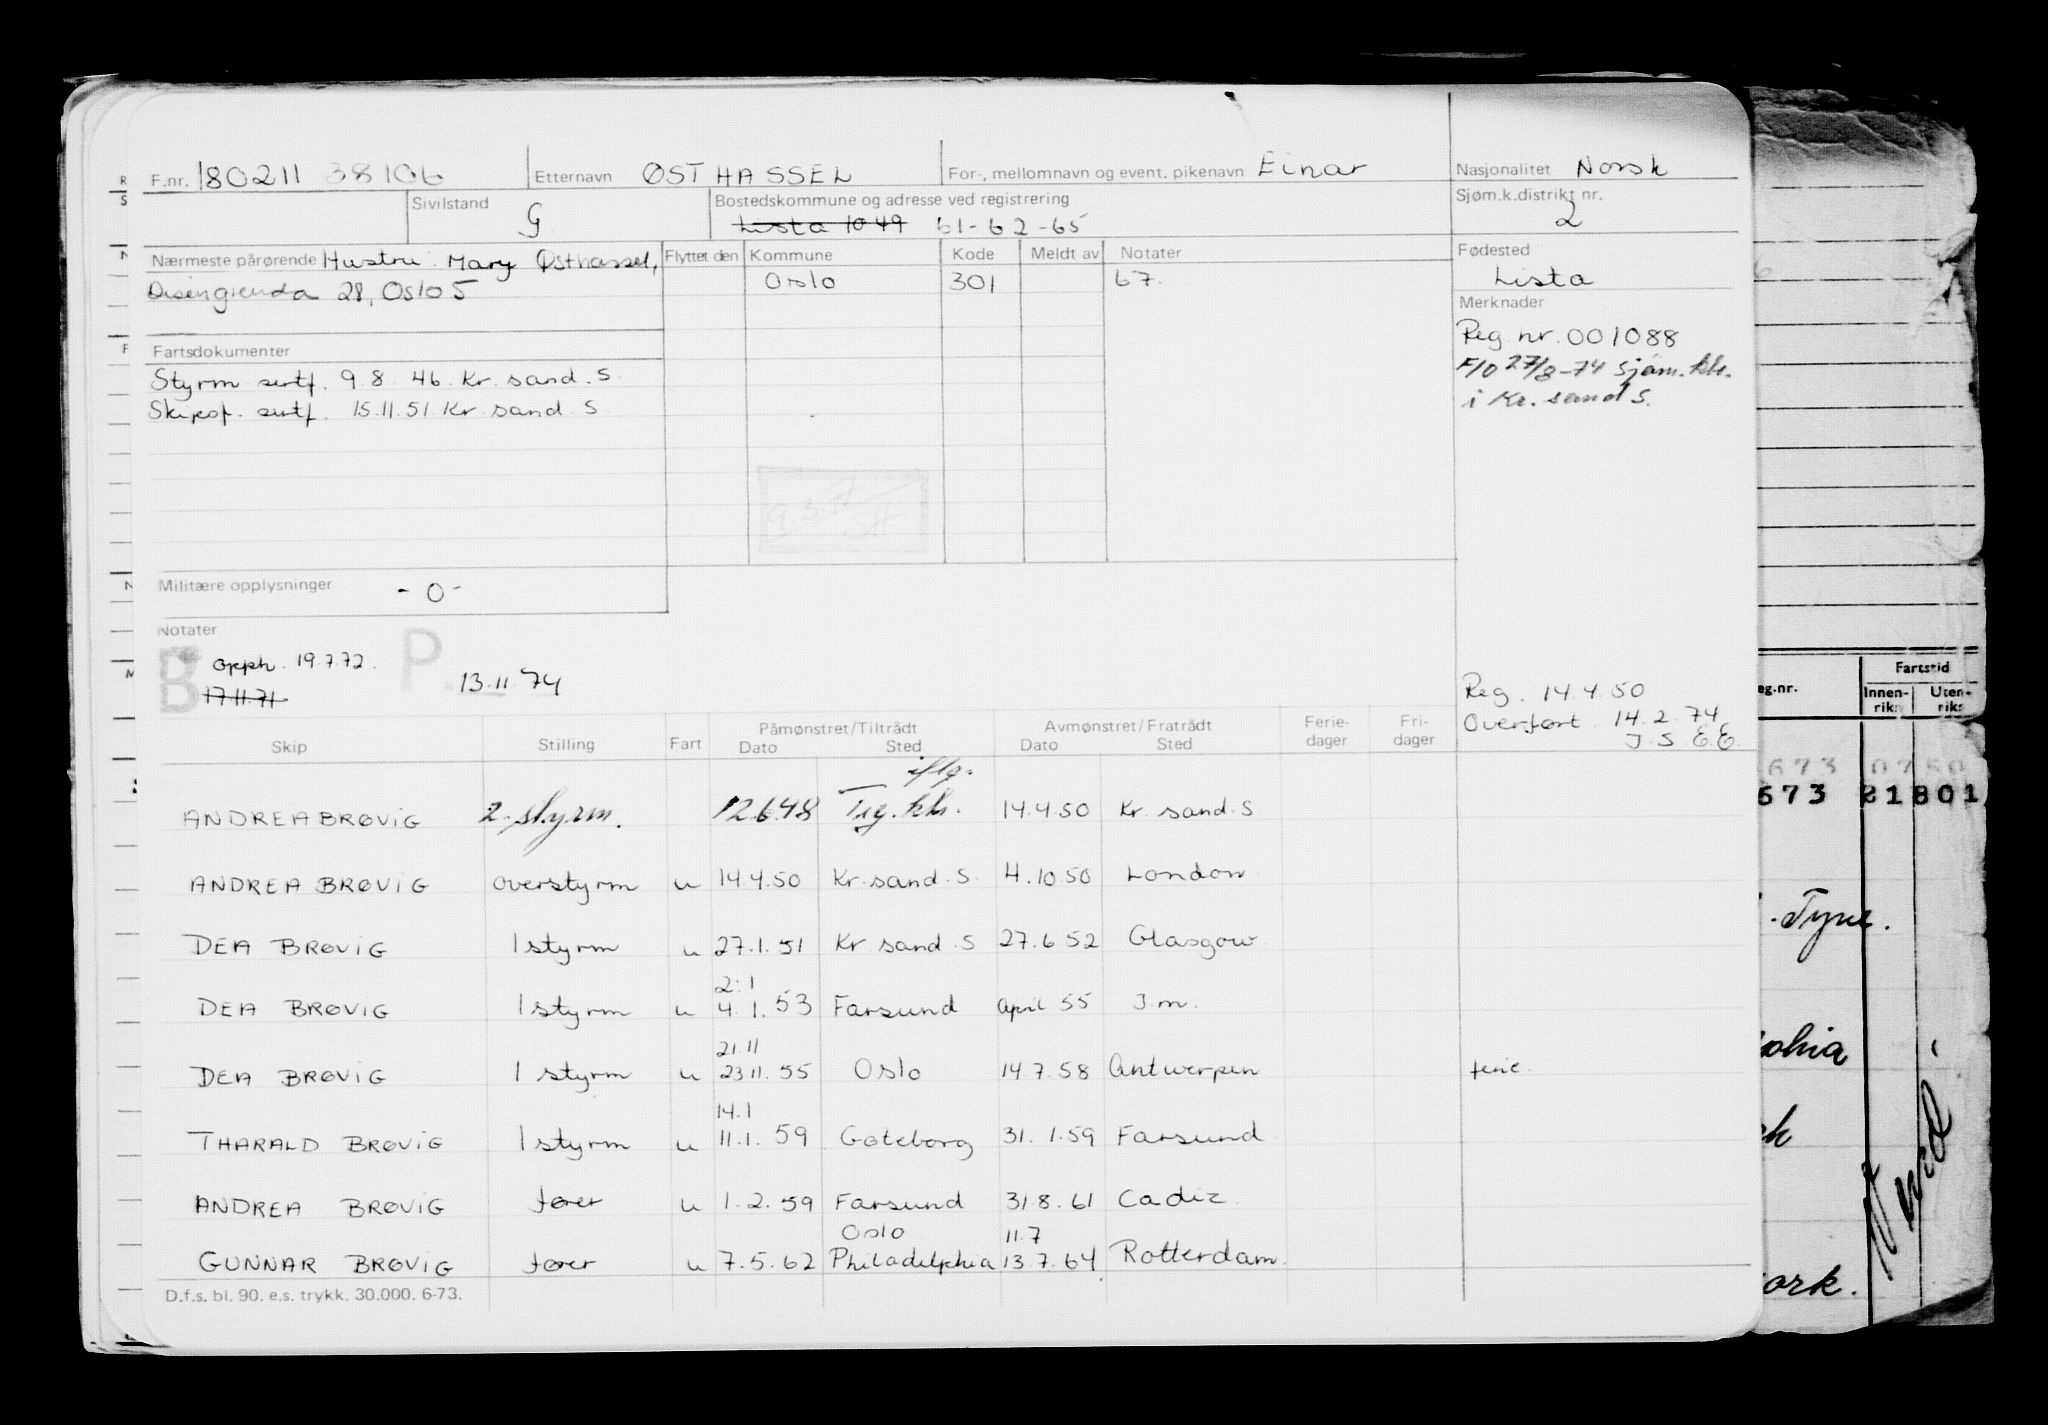 F.nr. 180211 38106 Etternavn ØSTHASSEL For-, mellomnavn og event. pikenavn Einar Nasjonalitet Norsk
Sivilstand G Bostedskommune og adresse ved registrering Lista 1049 61-62-65 Sjøm.k.distrikt nr. 2
Nærmeste pårørende Hustru: Mary Østhassel, Flyttet den Kommune Kode Meldt av Notater Fødested
28, Oslo 5 Oslo 301 67. Lista
Merknader
Reg. nr. 001088
F/O 27/8-74 Sjøm.ktr.
i Kr. sand S.
Fartsdokumenter
Styrm sertf. 9.8.46. Kr. sand. S.
Skipsf. sertf. 15.11.51. Kr. sand. S
Militære opplysninger -0-
Notater
B opph. 19.7.72. P. 13.11.74
17.11.71
Reg. 14.4.50
Overført 14.2.74
J.S. E.E.
Skip Stilling Fart Påmønstret/Tiltrådt Dato Sted Avmønstret/Fratrådt Dato Sted Ferie-dager Fri-dager
iflg.
ANDREA BRØVIG 2. styrm. 12.6.48 14.4.50 Kr. sand. S
ANDREA BRØVIG overstyrm u 14.4.50 Kr. sand. S. 4.10.50 London
DEA BRØVIG 1 styrm u 27.1.51 Kr sand. S 27.6 52 Glasgow
2.1
DEA BRØVIG 1 styrm u 4.1.53 Farsund April 55 J.m.
21.11
DEA BRØVIG 1 styrm u 23.11.55 Oslo 14.7.58 Antwerpen ferie.
14.1
THARALD BRØVIG 1 styrm u 11.1.59 Gøteborg 31.1.59 Farsund
ANDREA BRØVIG fører u 1.2.59 Farsund 31.8.61 Cadiz
Oslo 11.7
GUNNAR BRØVIG fører u 7.5.62 Philadelphia 13.7.64 Rotterdam.
D.f.s. bl. 90. e.s. trykk. 30.000. 6-73.
eg.nr. Fartstid
Innen-riks Uten-riks
673 07 50
673 21 801
Tyne.